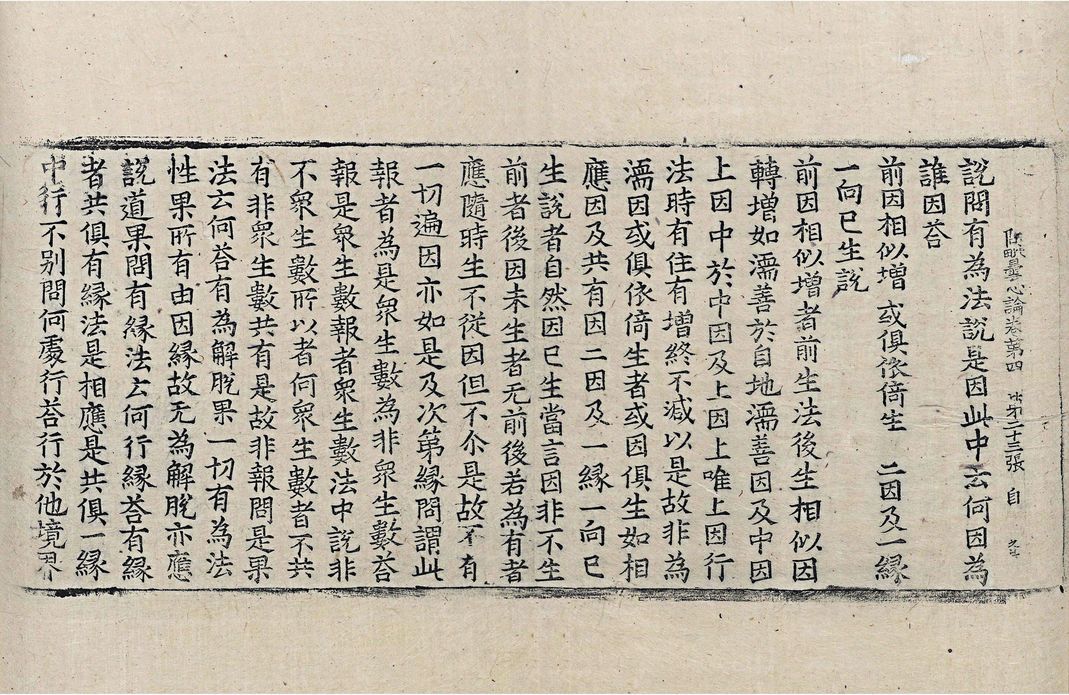 阿毗曇心論卷第四 第二十三張 自
說問有為法說是因此中云何因為
誰因荅
前因相似增 或俱依倚生 二因及一緣
一向已生說
前因相似增者前生法後生相似因
轉增如濡善於自地濡善因及中因
上因中於中因及上因上唯上因行
法時有住有增終不減以是故非為
濡因或俱依倚生者或因俱生如相
應因及共有因二因及一緣一向已
生說者自然因已生當言因非不生
前者後因未生者无前後若為有者
應隨時生不從因但不尒是故不有
一切遍因亦如是及次第緣問謂此
報者為是眾生數為非眾生數荅
報是眾生數報者眾生數法中說非
不眾生數所以者何眾生數者不共
有非眾生數共有是故非報問是果
法云何荅有為解脫果一切有為法
性果所有由因緣故无為解脫亦應
說道果問有緣法云何行緣荅有緣
者共俱有緣法是相應是共俱一緣
中行行不别問何處行荅行於他境界